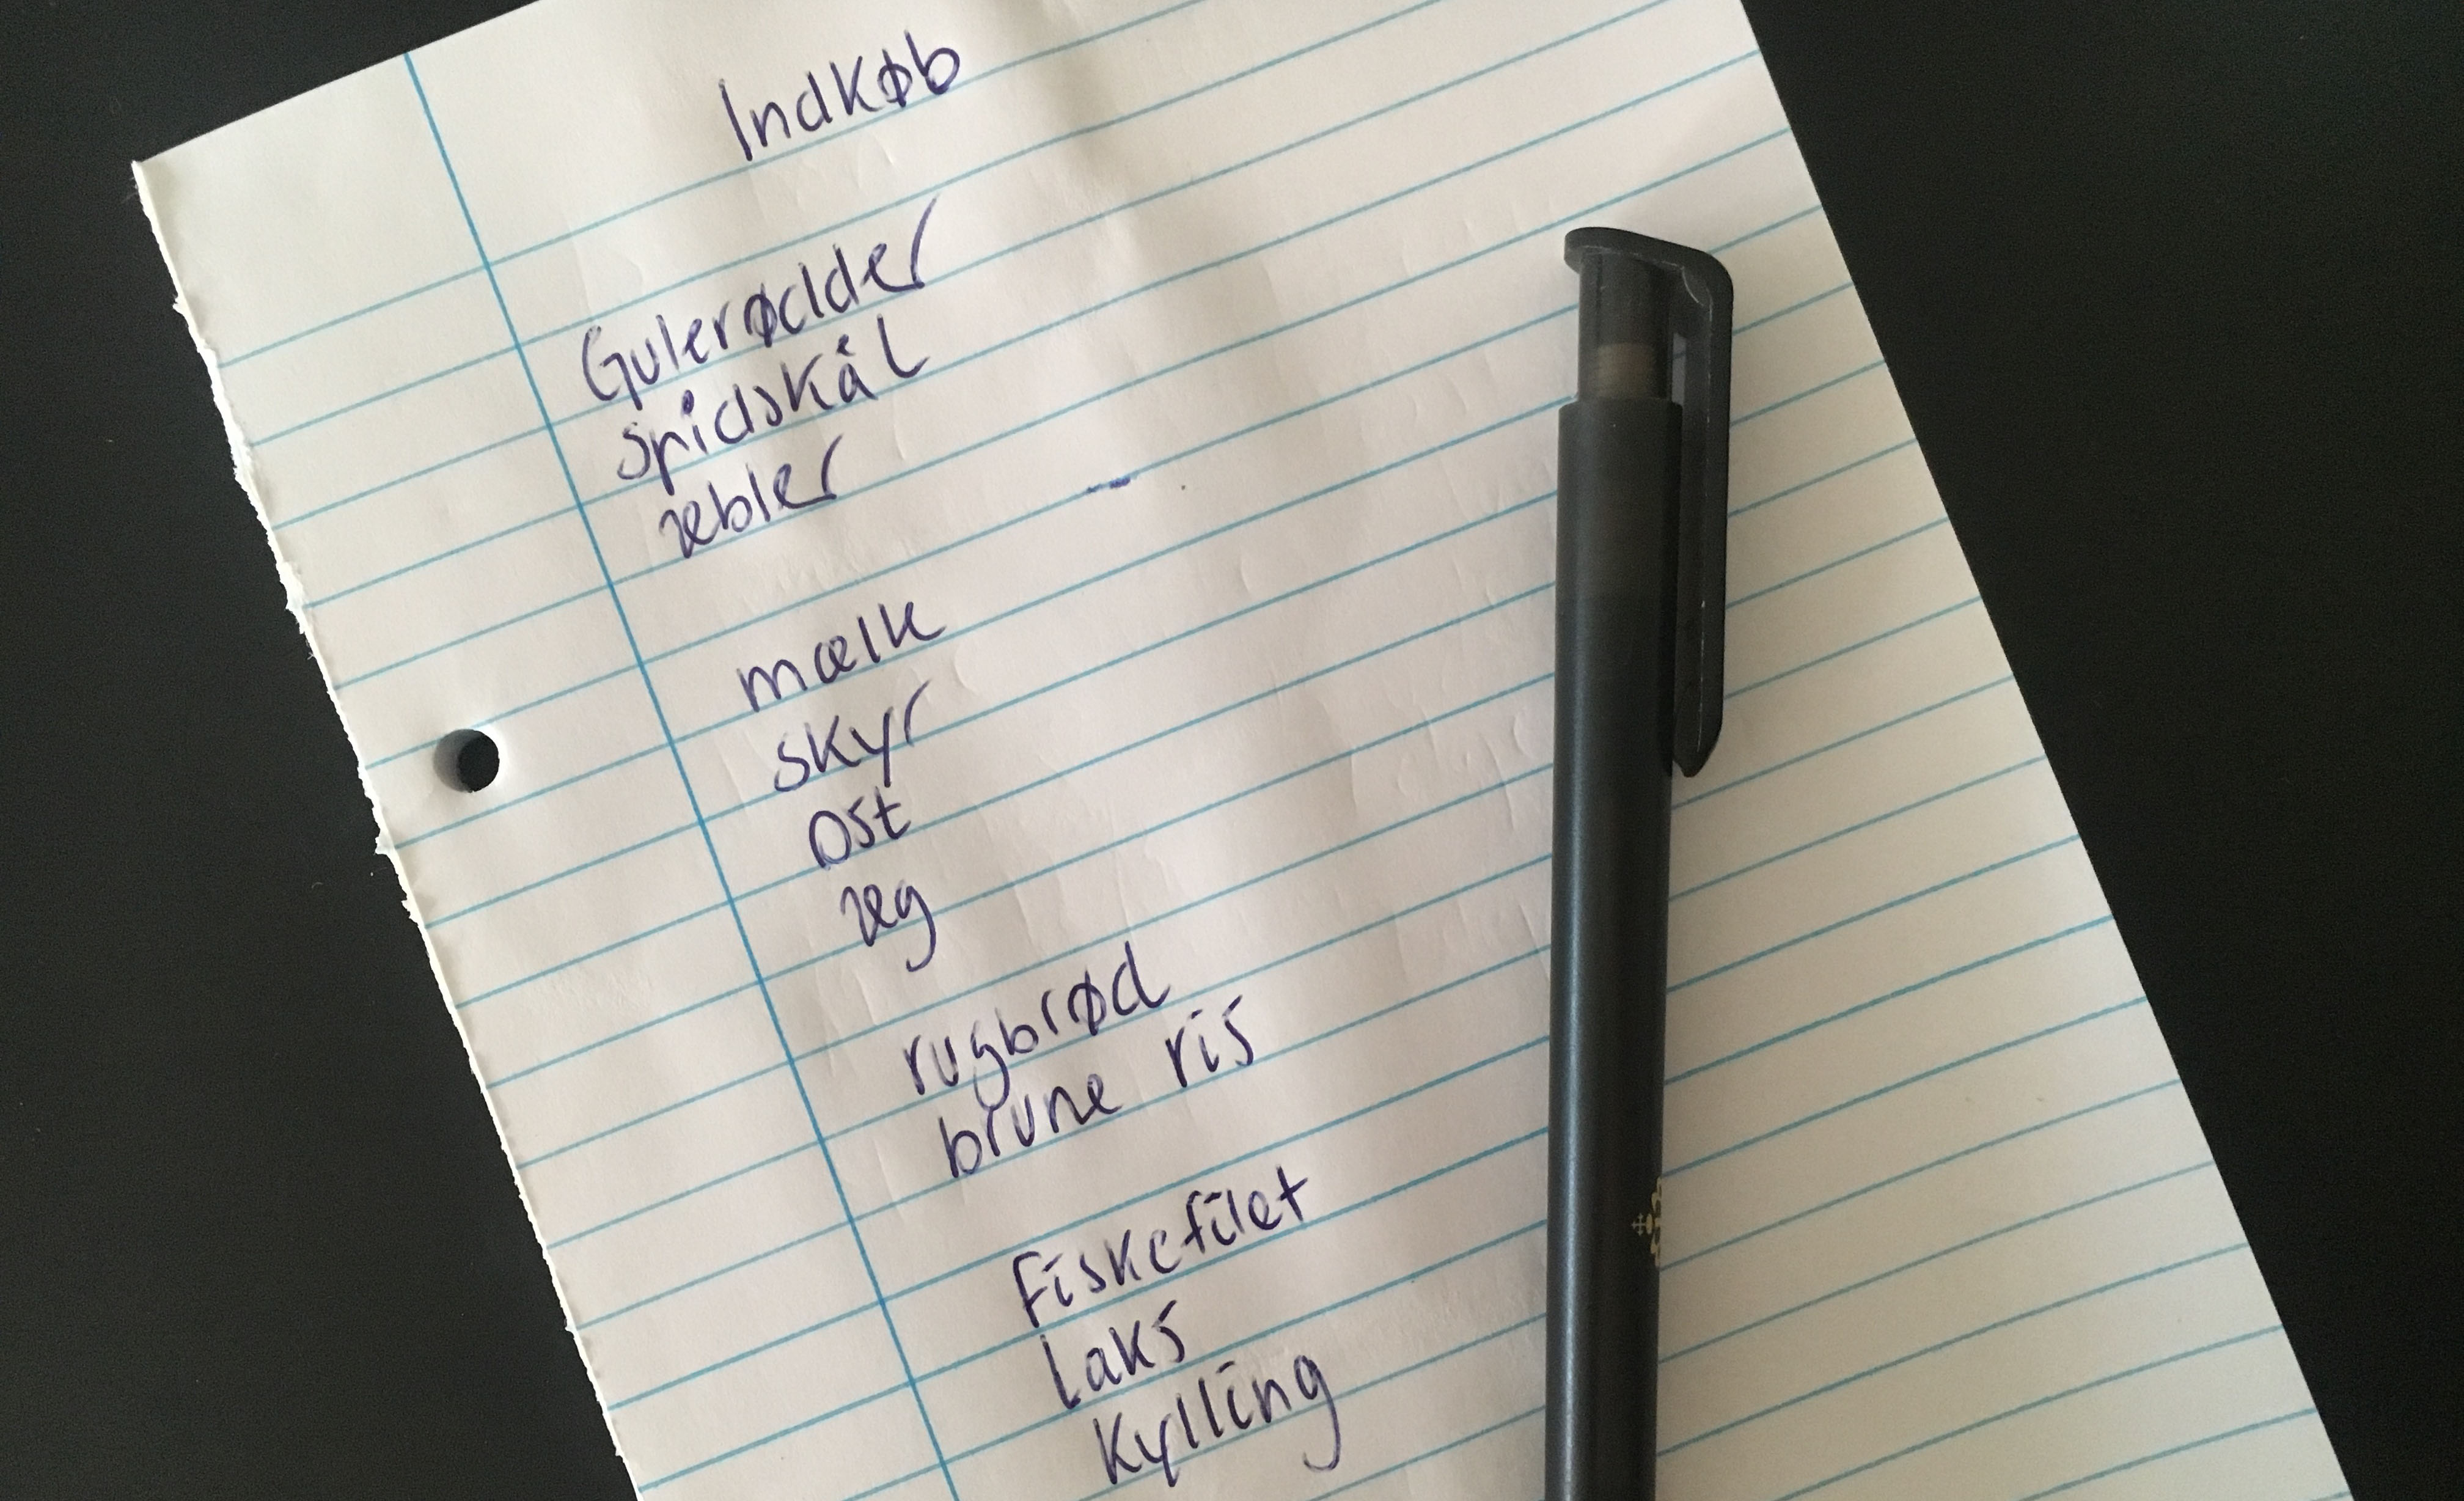 Indkøb
Gulerødder
spidskål
æbler
mælk
skyr
ost
æg
rugbrød
brune ris
Fiskefilet
Laks
Kylling